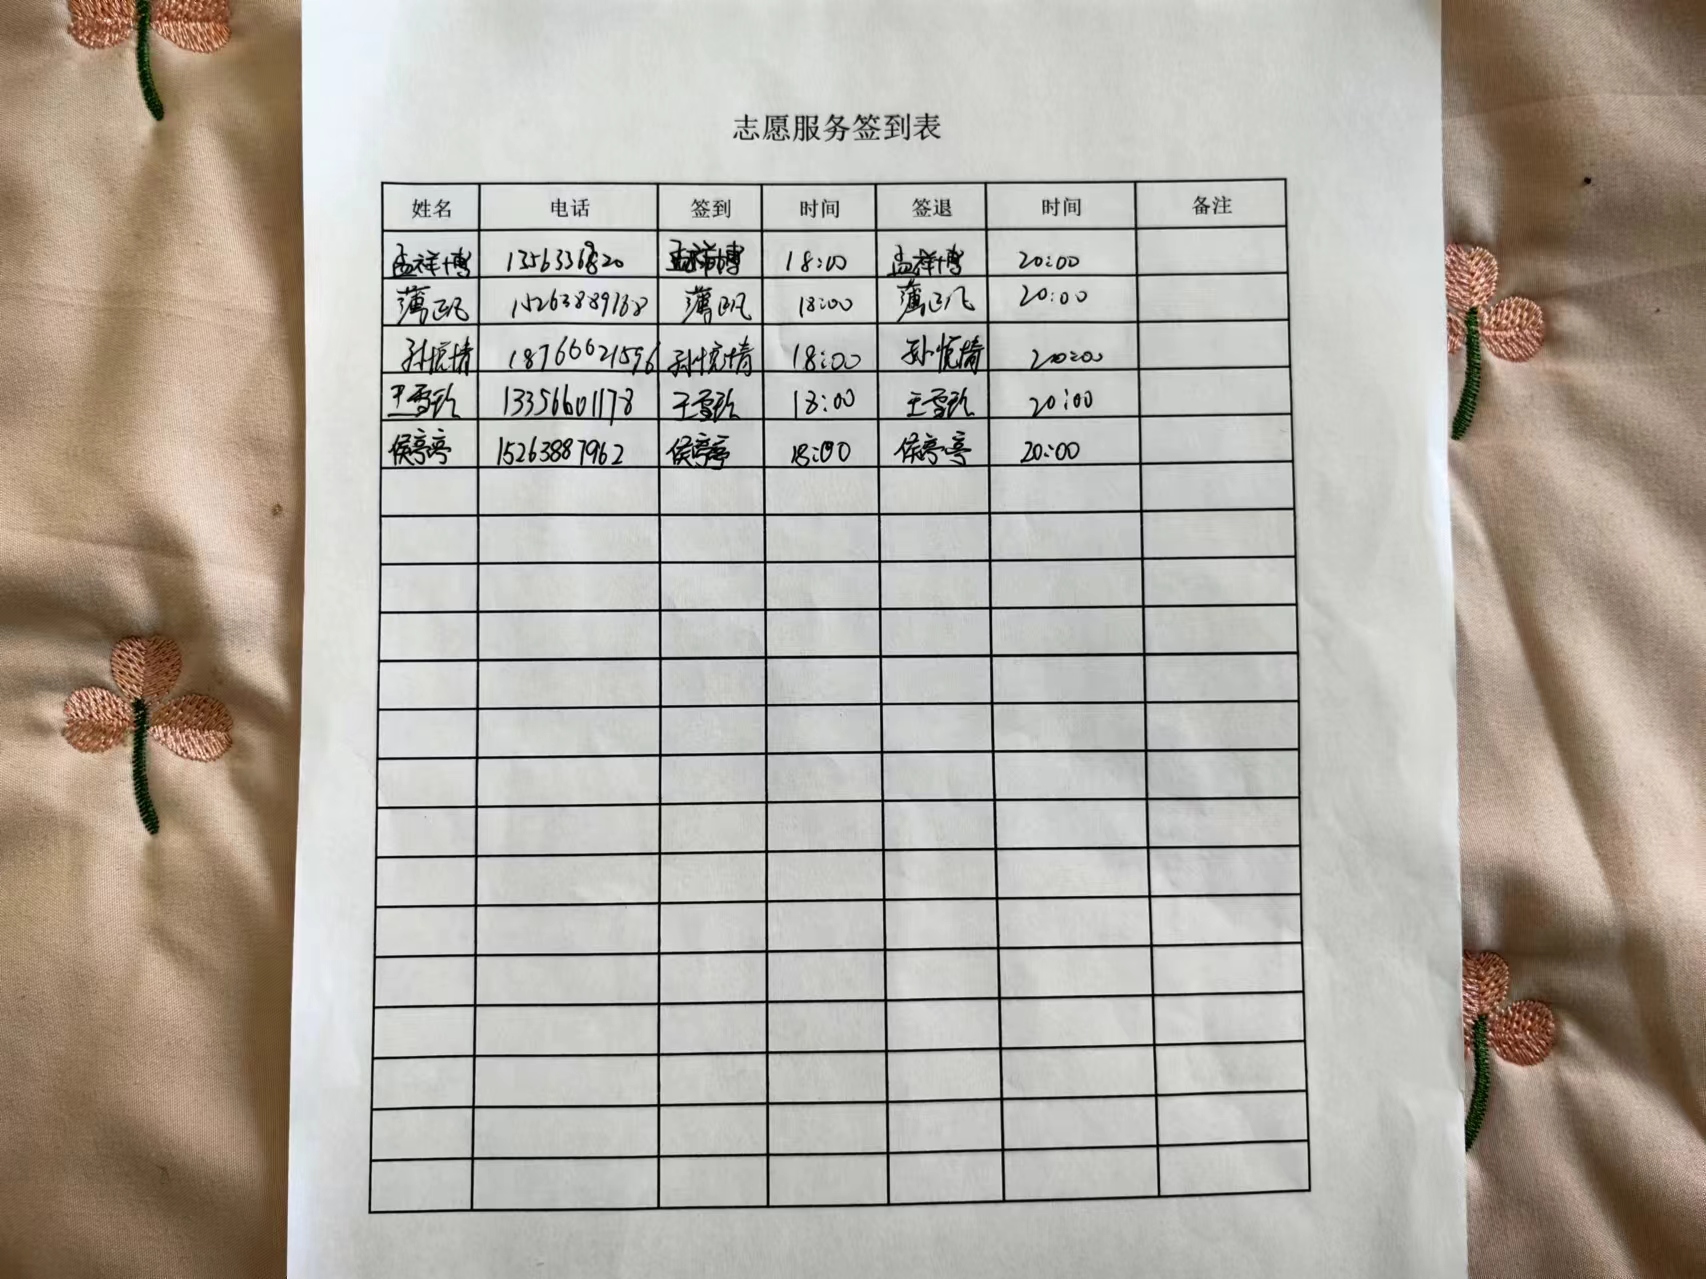 志愿服务签到表
姓名 电话 签到 时间 签退 时间 备注
孟祥博 1356336820 孟祥博 18:00 孟祥博 20:00
薄正凡 15263889168 薄正凡 18:00 薄正凡 20:00
孙悦婧 18766621596 孙悦婧 18:00 孙悦婧 20:00
王雪玖 13356601178 王雪玖 18:00 王雪玖 20:00
侯亭亭 15263887962 侯亭亭 18:00 侯亭亭 20:00